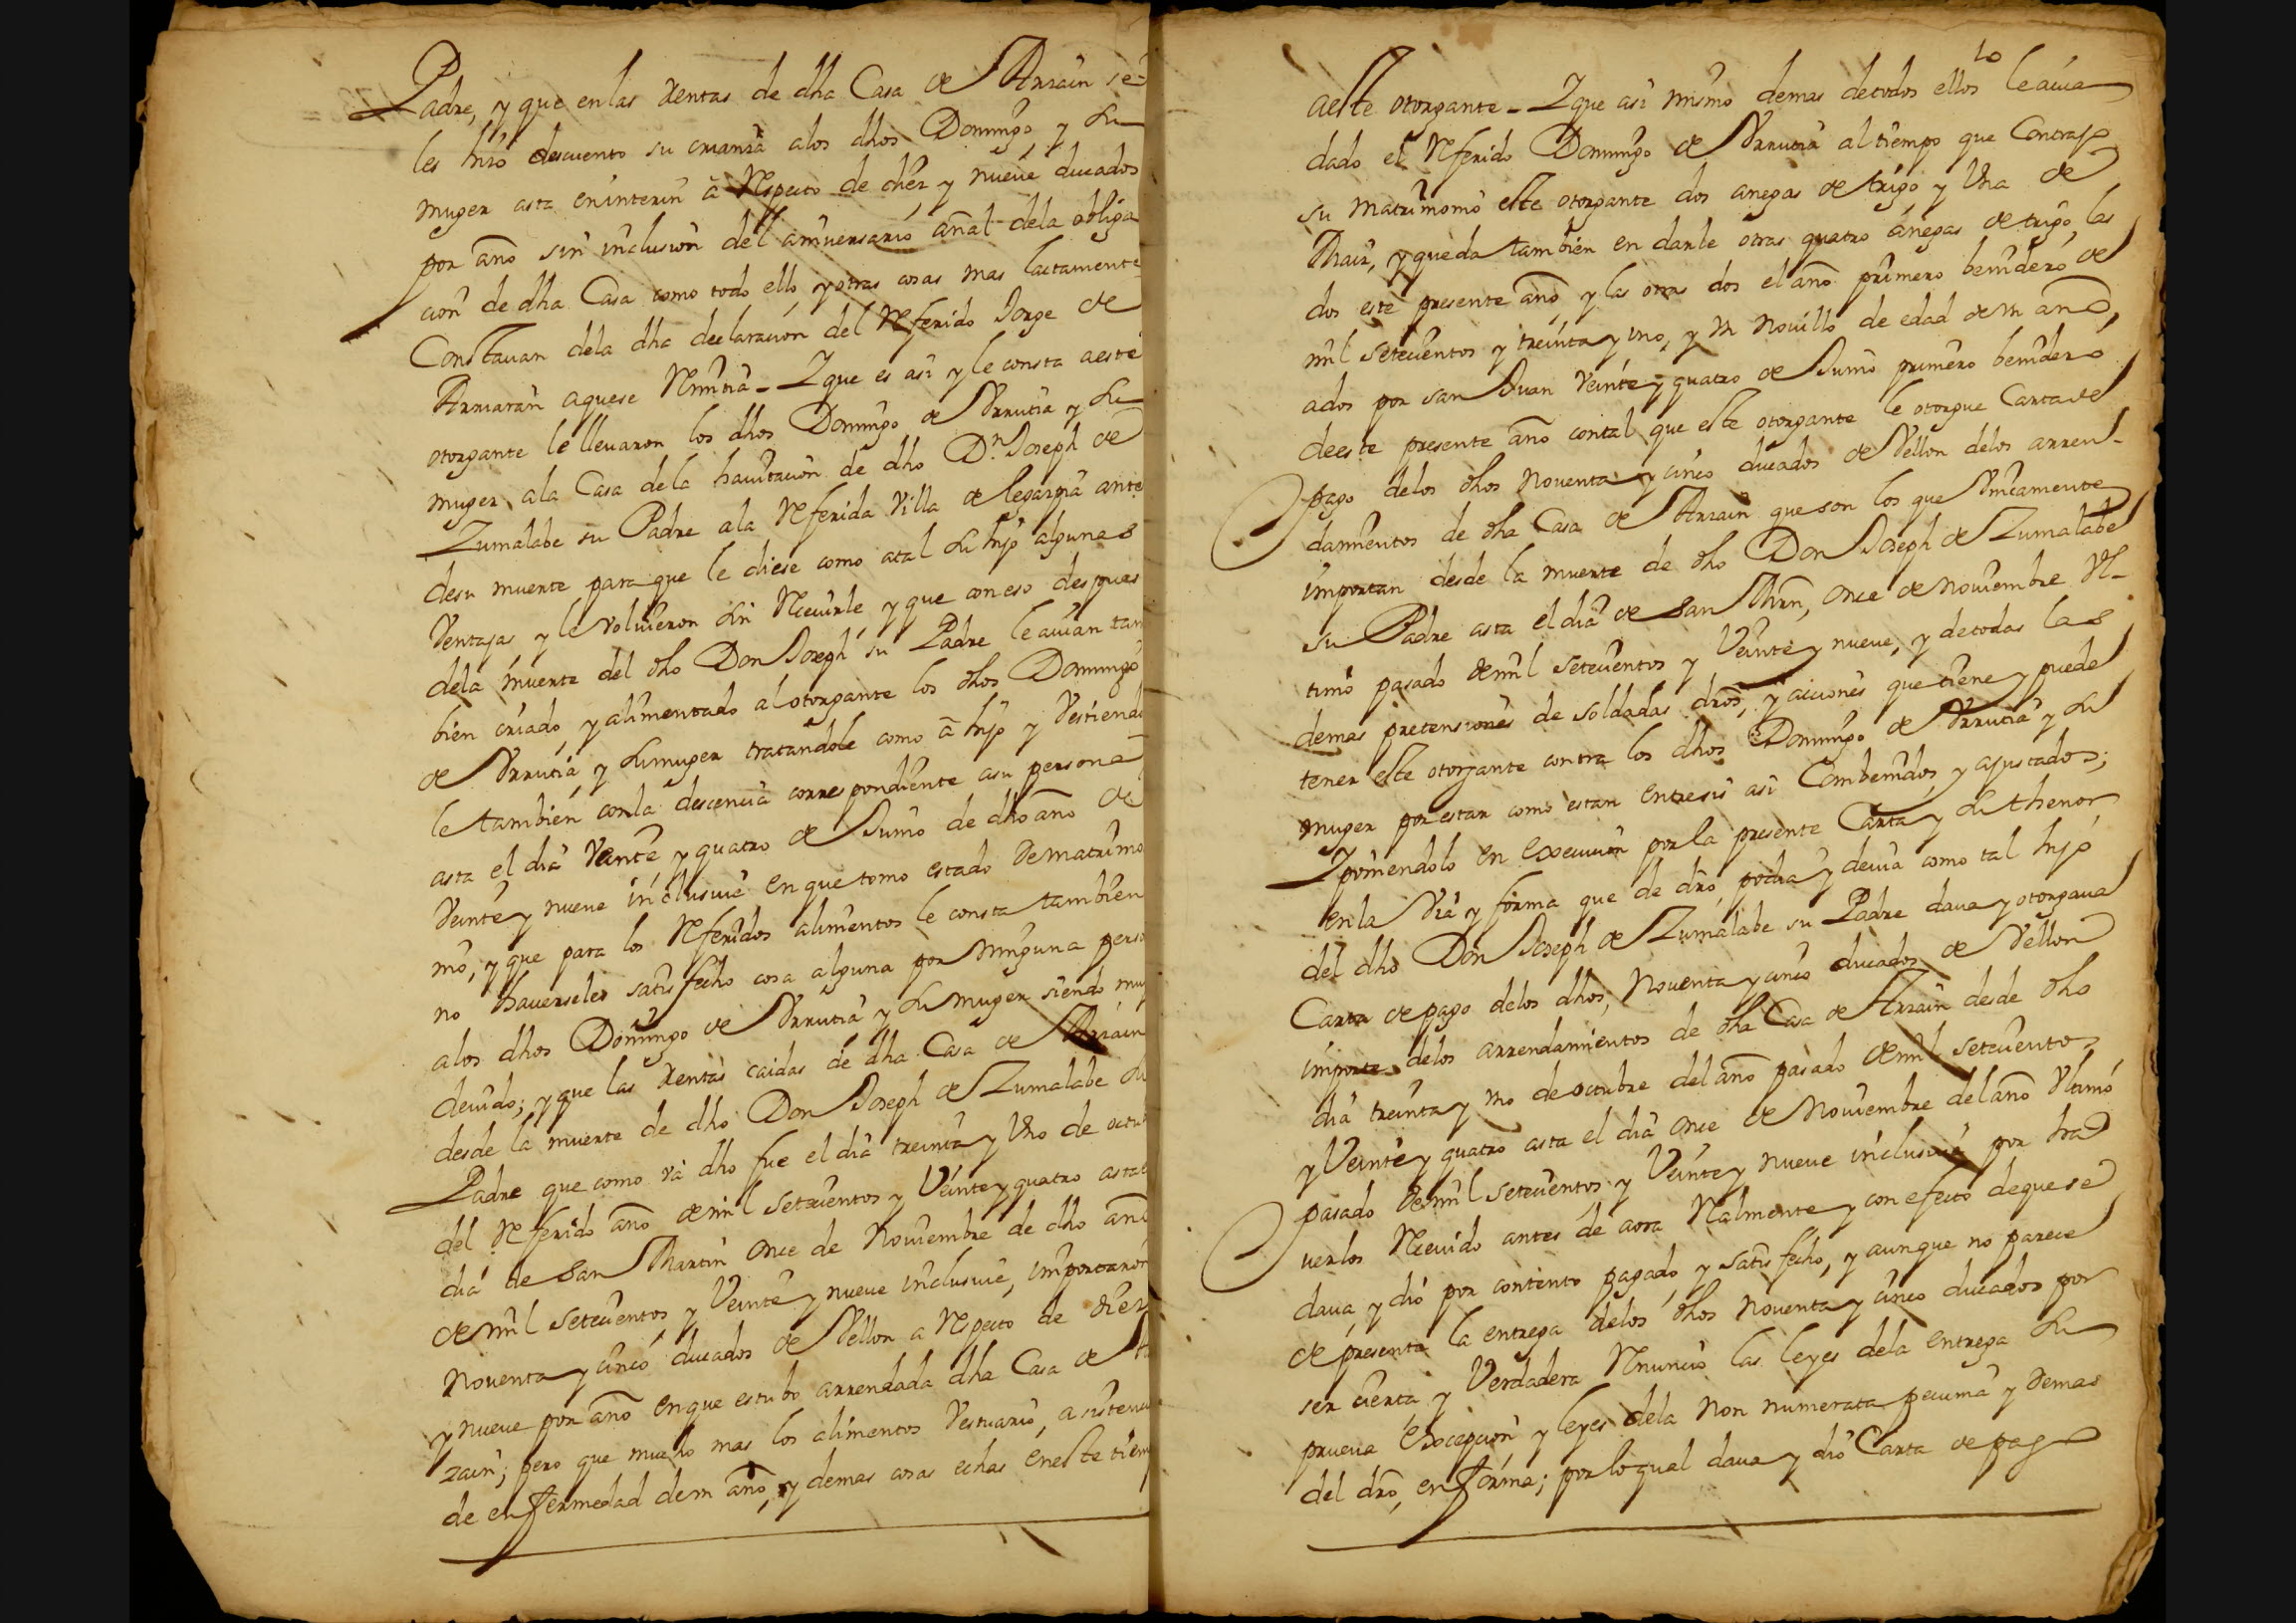 Padre, y que en las Rentas de dha Casa de Arrain se
les hizo descuento su crianza alos dhos Domingo, y Su
muger asta eninterin â Respecto de diez y nueue ducados
por año sin inclusion del aniuersario añal dela obliga
cion de dha Casa como todo ello, y otras cosas mas lactamente
Constauan dela dha declaracion del Referido Jorge de
aquese Y que es asi y le consta aeste
otorgante le lleuaron los dhos Domingo de Vrrutia y Su
muger ala Casa dela hauitacion de dho Dn. Joseph de
Zumalabe su Padre ala Referida Villa de legazpia ante
desu muerte para que le diese como atal Su hijo algunas
Ventajas y le voluieron Sin Reciuirle, y que con eso despues
dela muerte del dho Don Joseph su Padre le auian tam
bien criado, y alimentado al otorgante los dhos Domingo
de Vrrutia, y Su muger tratandole como â hijo y Vestiendo
le tambien conla descencia correspondiente asu persona
asta el dia Veinte, y quatro de Junio de dho año de
Veinte y nueue inclusiue en que tomo estado de matrimo
nio, y que para los Referidos alimentos le consta tambien
no hauerseles satisfecho cosa alguna por ninguna perso
alos dhos Domingo de Vrrutia y Su muger siendo muy
deuido; y que las Rentas caidas de dha Casa de Arrain
desde la muerte de dho Don Joseph de Zumalabe Su
Padre que como va dho fue el dia treinta y Vno de octu
del Referido año de mil setecientos y Veinte y quatro asta
dia de San Martin Once de Nouiembre de dho año
de mil setecientos y Veinte y nueue inclusiue, importaron
Nouenta y cinco ducados de Vellon a Respecto de diez
y nueue por año en que estubo arrendada dha Casa de
zain; pero que mucho mas los alimentos Vestuario, asistencia
de enfermedad de Vn año, y demas cosas echas en este tiem
10
aeste otorgante_ Y que asi mismo demas de todos ellos le auia
dado el Referido Domingo de Vrrutia al tiempo que Contrajo
su matrimonio este otorgante dos anegas de trigo, y Vna de
Maiz, y queda tambien en darle otras quatro anegas de trigo, las
dos este presente año, y las otras dos el año primero benidero de
mil setecientos y treinta y vno, y Vn nouillo de edad de Vn año,
ados por san Juan Veinte y quatro de Junio primero benidero
deeste presente año contal que este otorgante le otorgue Carta de
pago delos dhos Nouenta y cinco ducados de Vellon delos arren-
damientos de dha Casa de Arrain que son los que Vnicamente
importan desde la muerte de dho Don Joseph de Zumalabe
su Padre asta el dia de San Mrn, Once de nouiembre Vl-
timo pasado de mil setecientos y Veinte y nueue, y de todas las
demas pretensiones de soldadas dros, y aciones que tiene y puede
tener este otorgante contra los dhos Domingo de Vrrutia y Su
muger por estar como estan entresis asi Combenidos, y ajustados;
Y poniendolo en execucion por la presente Carta y Su thenor
en la Via y forma que de dro, podia y deuia como tal hijo
del dho Don Joseph de Zumalabe su Padre daua y otorgaua
Carta de pago delos dhos, Nouenta y cinco ducados de Vellon
importe delos arrendamientos de dha Casa de Arrain desde dho
dia treinta y vno de octubre del año pasado de mil setecientos
y Veinte y quatro asta el dia once de Nouiembre del año Vltimo
pasado de mil setecientos y Veinte y nueue inclusiue por ha
uerlos Reciuido antes de aora Realmente y con efecto de que se
daua, y dio por contento pagado, y satisfecho, y aunque no parece
de presente la entrega delos dhos Nouenta y cinco ducados por
ser cierta y Verdadera Renuncio las leyes dela entrega Su
prueua excepcion y leyes dela non numerata pecunia y demas
del dro, en forma; por lo qual daua y dio Carta de pago